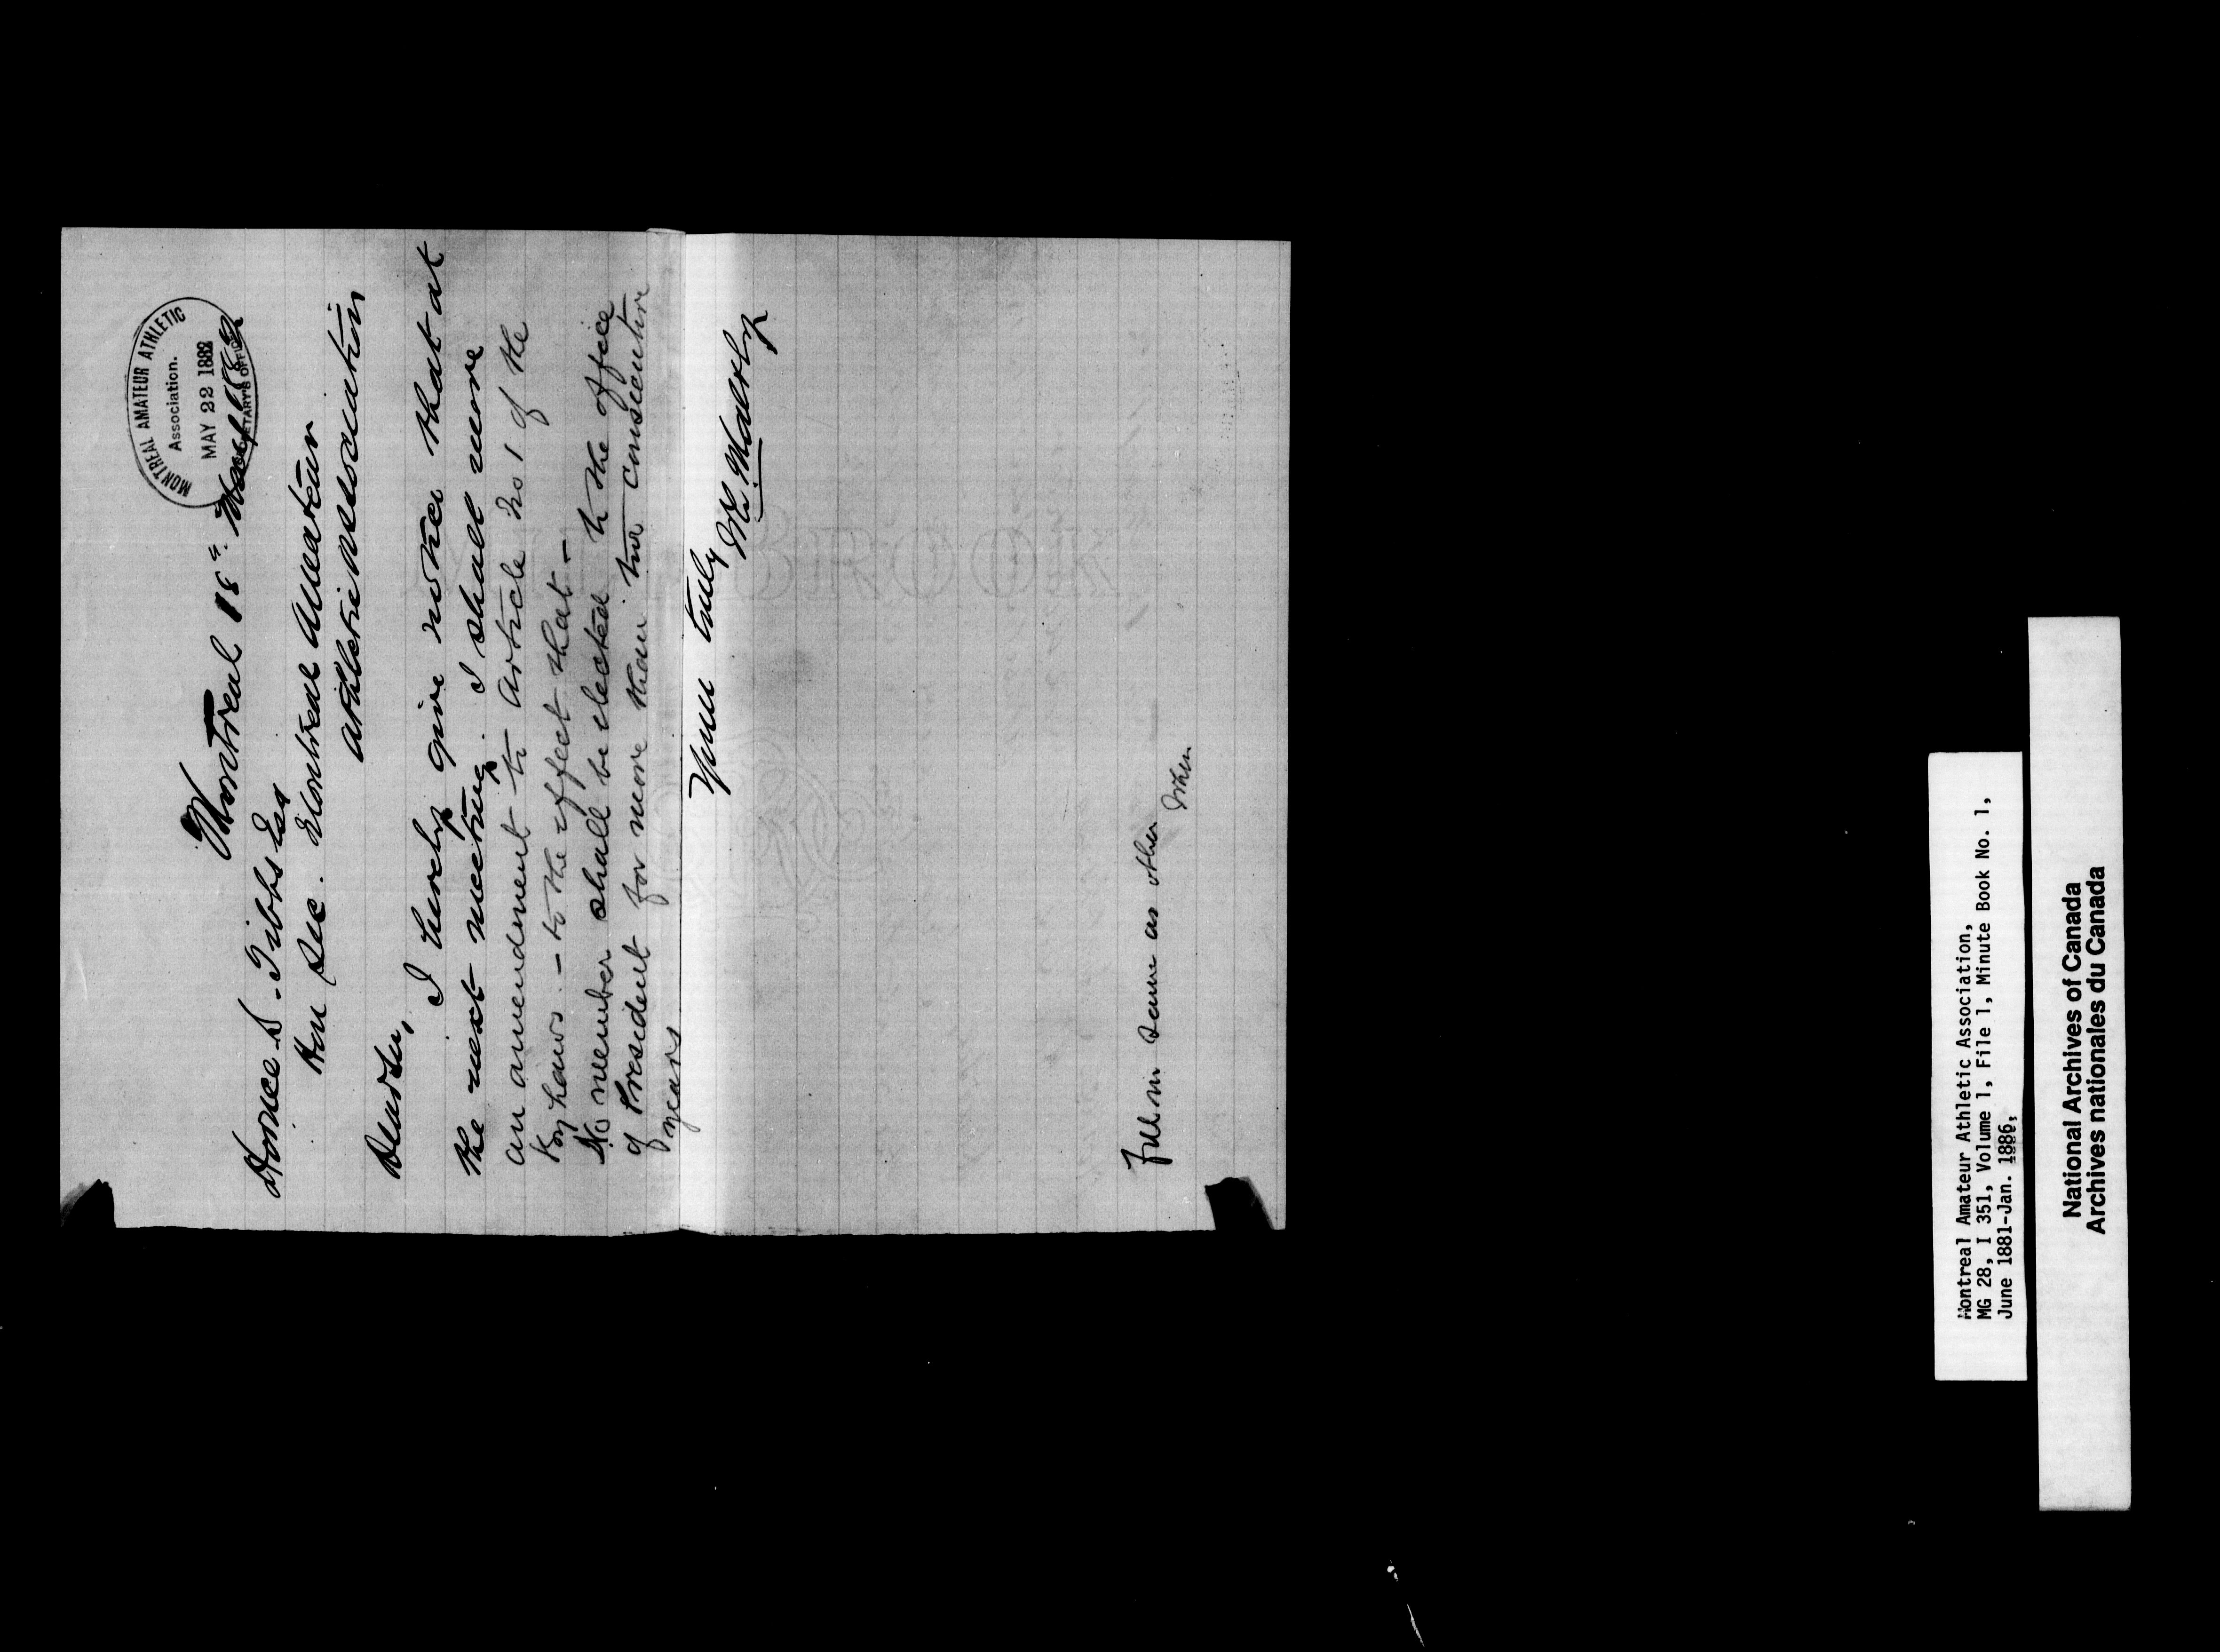 MONTREAL AMATEUR ATHLETIC
Association.
MAY 22 1882
SECRETARY'S OFFICE
Montreal 18th May 1882
Horace S. Tibbs Esq
Hon Sec. Montreal Amateur
Athletic Association
Dear Sir,
I hereby give notice that at
the next meeting I shall move
an amendment to Article No 1 of the
By Laws - to the effect that -
No member shall be elected to the office
of President for more than two consecutive
years
Yours truly
MILLBROOK
Fill in same as other
Montreal Amateur Athletic Association,
MG 28, I 351, Volume 1, File 1, Minute Book No. 1,
June 1881-Jan. 1886,
National Archives of Canada
Archives nationales du Canada